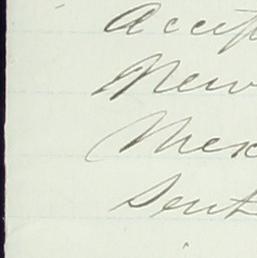 Accep
New
Mex
Sent